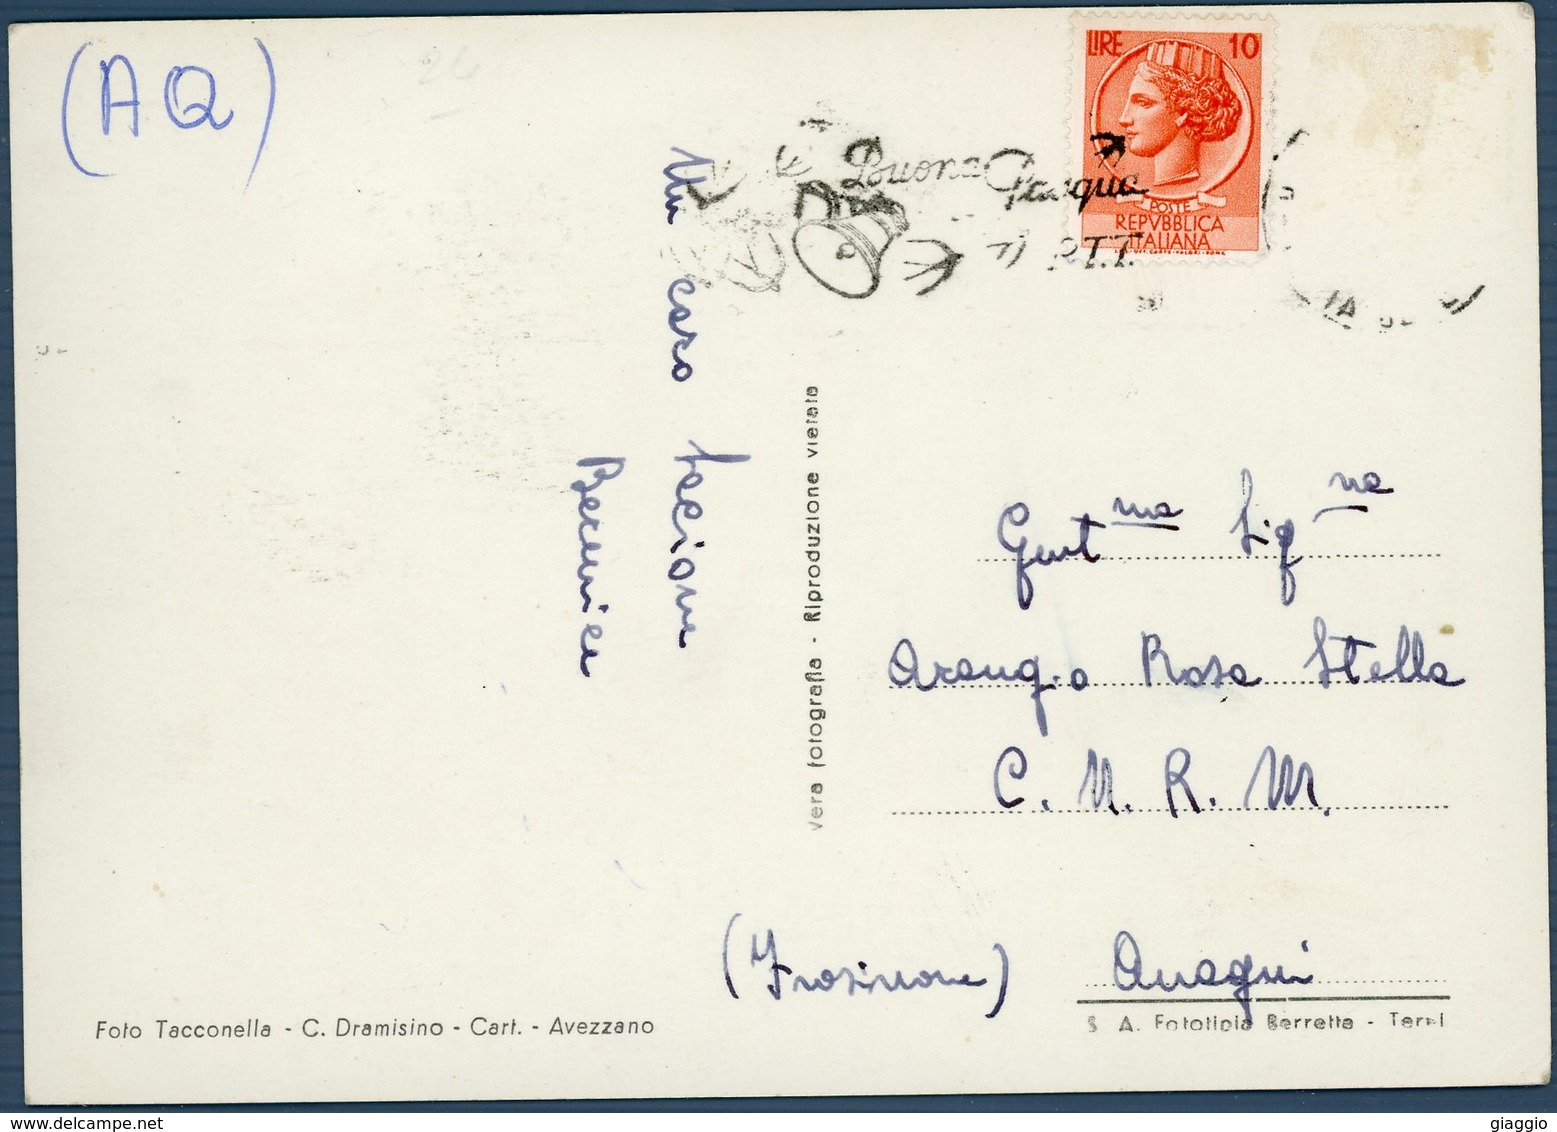 (AQ)
LIRE 10
Buona Pasqua
P.T.T.
POSTE
REPVBBLICA
ITALIANA
Un caro
bacione
Berenice
Vera fotografia - Riproduzione vietata
Gent ma Sig na
Arangio Rosa Stella
C. N. R. M.
(Frosinone) Anagni
Foto Tacconella - C. Dramisino - Cart. - Avezzano
S. A. Fototipia Berretta - Terni
giaggio